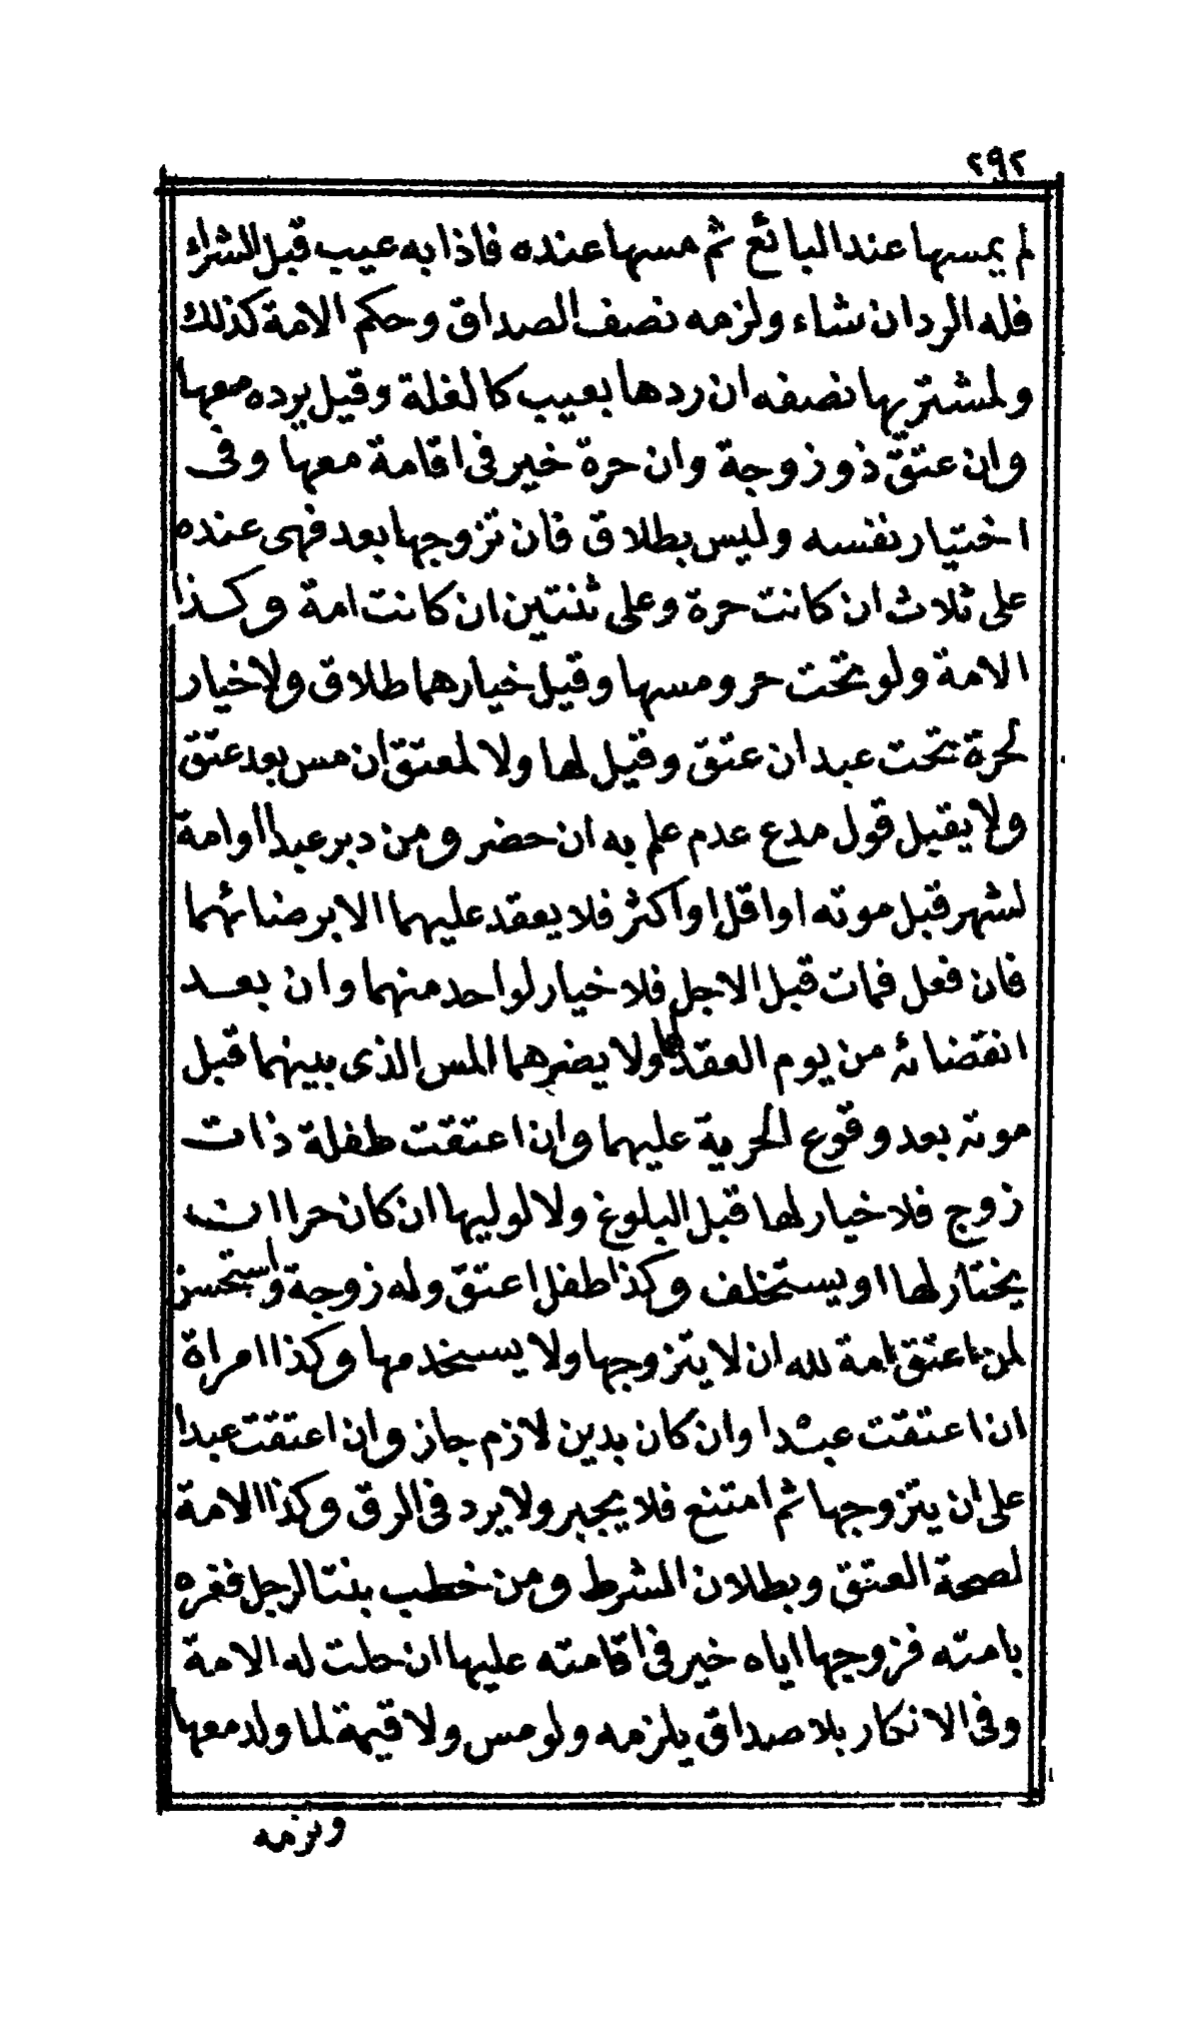 ٢٩٢
لم يمسها عند البائع ثم مسها عنده فاذا به عيب قبل الشراء
فله الرد ان شاء ولزمه نصف الصداق وحكم الامة كذلك
ولمشتريها نصفه ان ردها بعيب كالغلة وقيل يرده معها
وان عتق ذو زوجة وان حرة خير فى اقامة معها وفى
اختيار نفسه وليس بطلاق فان تزوجها بعد فهى عنده
على ثلاث ان كانت حرة وعلى ثنتين ان كانت امة وكذا
الامة ولو تحت حر ومسها وقيل خيارهما طلاق ولا خيار
لحرة تحت عبد ان عتق وقيل لها ولا لمعتق ان مس بعد عتق
ولا يقبل قول مدع عدم علم به ان حضر ومن دبر عبدا او امة
لشهر قبل موته او اقل او اكثر فلا يعقد عليهما الا برضائهما
فان فعل فمات قبل الاجل فلا خيار لواحد منهما وان بعد
انقضائه من يوم العقد فلهما ولا يضرهما المس الذى بينهما قبل
موته بعد وقوع الحرية عليهما وان اعتقت طفلة ذات
زوج فلا خيار لها قبل البلوغ ولا لوليها ان كان حرا ان
يختار لها او يستخلف وكذا طفل اعتق وله زوجة واستحسن
لمن اعتق امة لله ان لا يتزوجها ولا يستخدمها وكذا امراة
ان اعتقت عبدا وان كان بدين لازم جاز وان اعتقت عبدا
على ان يتزوجها ثم امتنع فلا يجبر ولا يرد فى الرق وكذا الامة
لصحة العتق وبطلان الشرط ومن خطب بنت الرجل فغره
بامته فزوجها اياه خير فى اقامته عليها ان حلت له الامة
وفى الانكار بلا صداق يلزمه ولو مس ولا قيمة لما ولد معها
ويلزمه